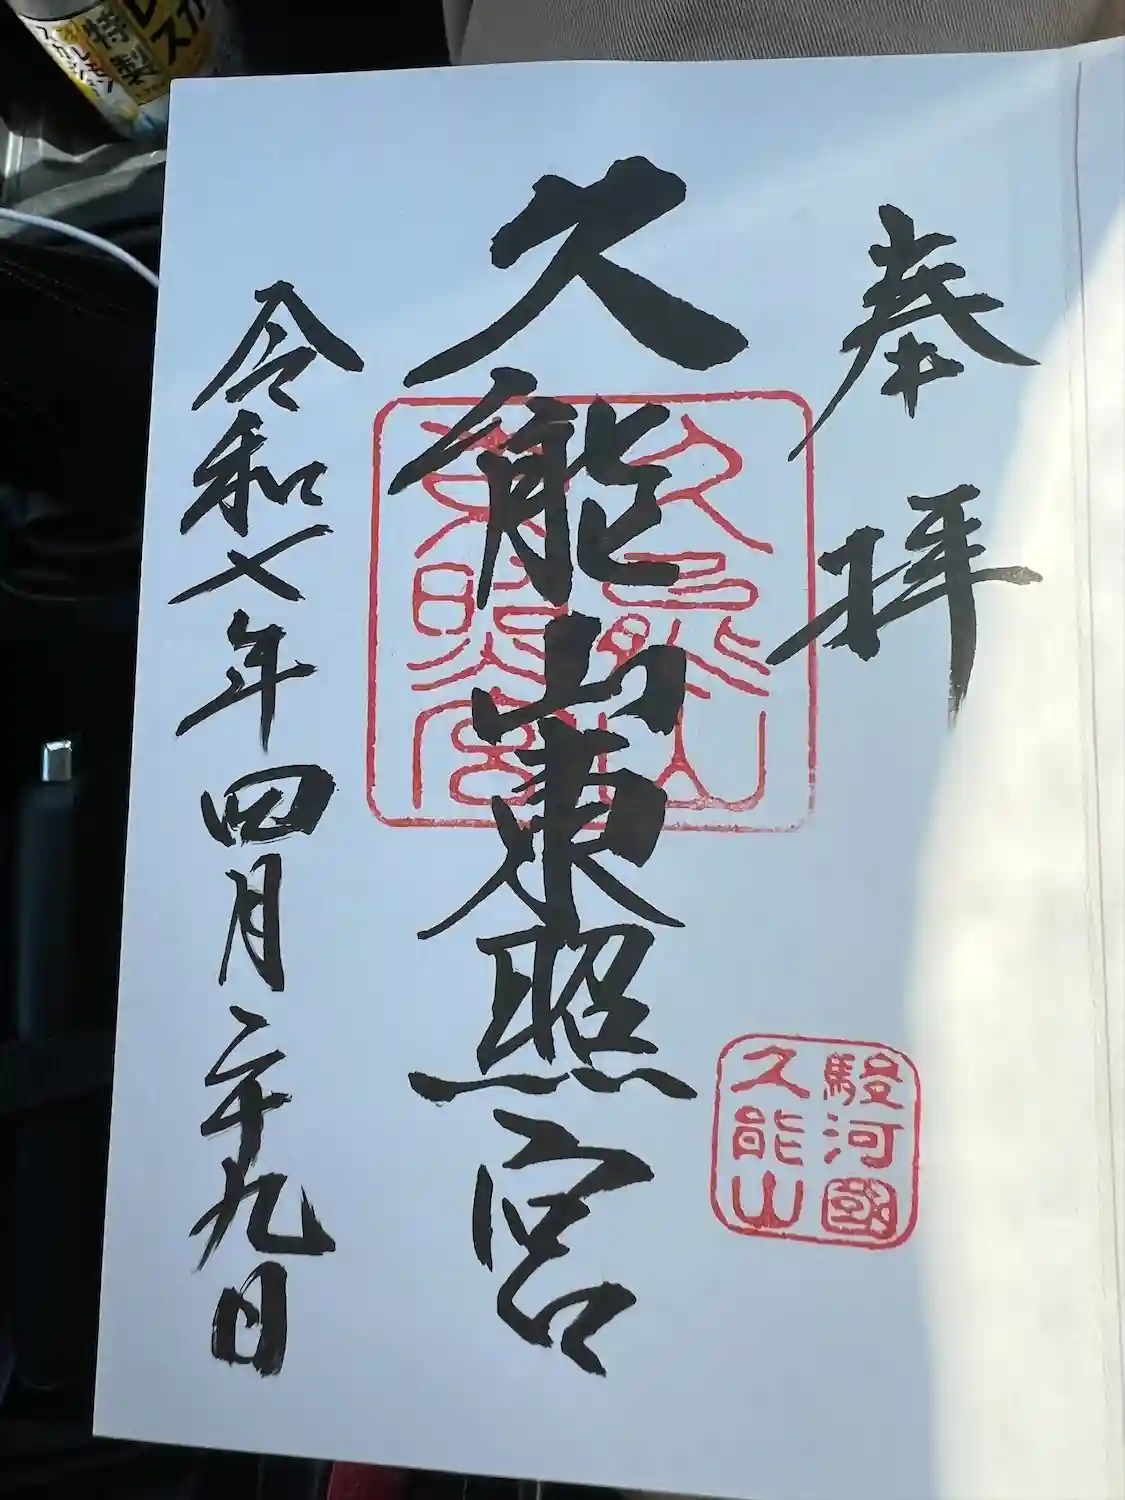 奉拝
久能山東照宮
久能山東照宮
駿河國
久能山
令和七年四月二十九日